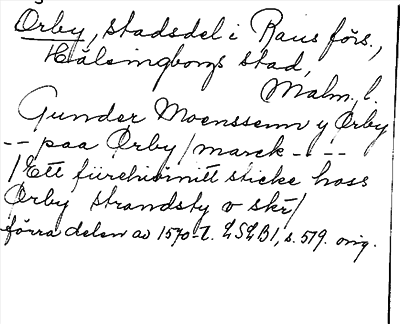 Örby, stadsdel i Raus förs.,
Hälsingborgs stad,
Malm. l.
Gunder Moenssenn y Ørby
-- paa Ørby / marck -- --
/ Ett fürehiomitt sticke hoss
Ørby strandsty v skr/
förra delen av 1570-t. LSLB1, s. 579. orig.